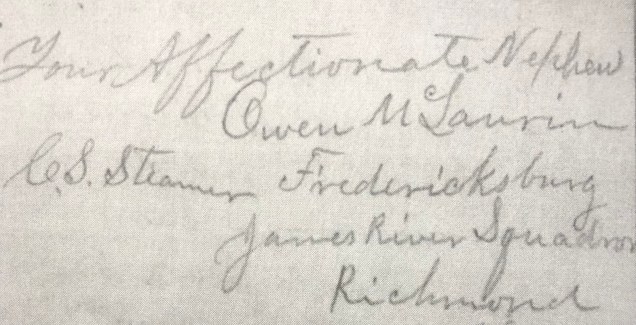 Your Affectionate Nephew
Owen McLaurin
C.S. Steamer Fredericksburg
James River Squadron
Richmond